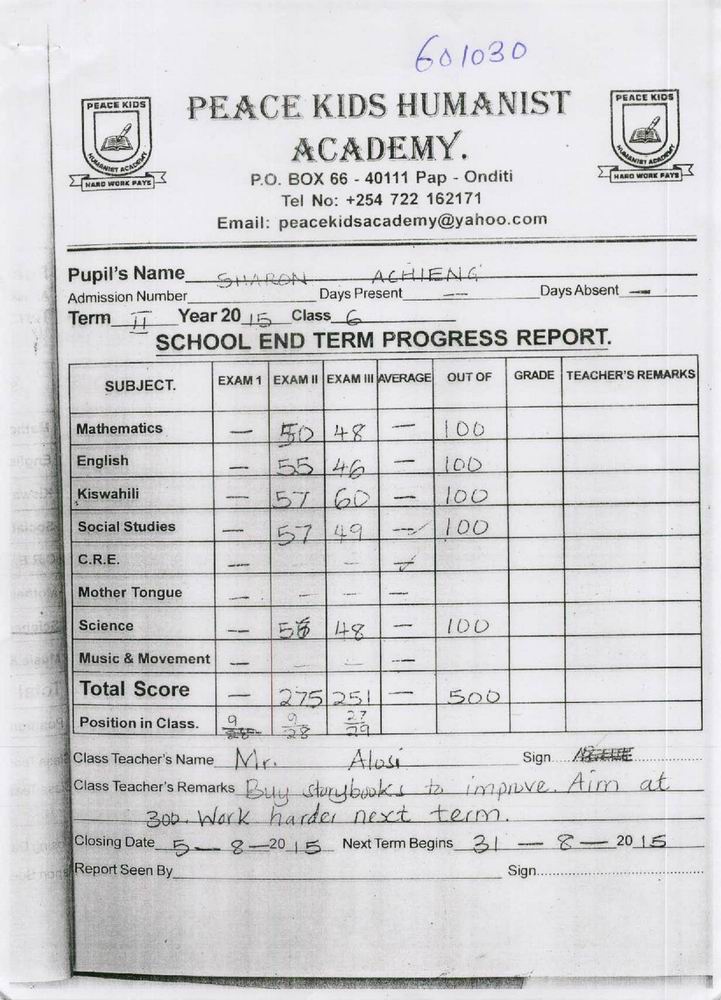 601030
PEACE KIDS HUMANIST
ACADEMY.
PEACE KIDS
HUMANIST ACADEMY
HARD WORK PAYS
PEACE KIDS
HUMANIST ACADEMY
HARD WORK PAYS
P.O. BOX 66 - 40111 Pap - Onditi
Tel No: +254 722 162171
Email: peacekidsacademy@yahoo.com
Pupil's Name SHARON ACHIENG
Admission Number Days Present — Days Absent —
Term II Year 20 15 Class 6
SCHOOL END TERM PROGRESS REPORT.
SUBJECT. EXAM 1 EXAM II EXAM III AVERAGE OUT OF GRADE TEACHER'S REMARKS
Mathematics — 50 48 — 100
English — 55 46 — 100
Kiswahili — 57 60 — 100
Social Studies — 57 49 — 100
C.R.E. — — — —
Mother Tongue — — — —
Science — 56 48 — 100
Music & Movement — — — —
Total Score — 275 251 — 500
Position in Class. 9/28 9/28 27/29
Class Teacher's Name Mr. Alusi Sign....
Class Teacher's Remarks Buy storybooks to improve. Aim at
300. Work harder next term.
Closing Date 5 — 8 — 20 15 Next Term Begins 31 — 8 — 20 15
Report Seen By Sign....